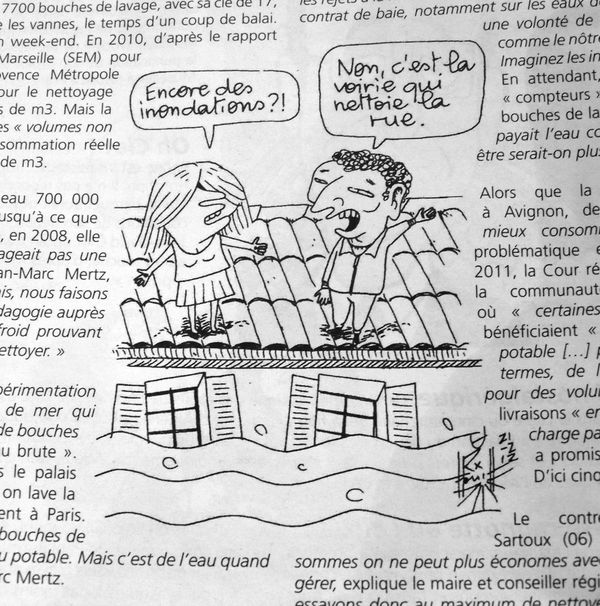 7700 bouches de lavage, avec sa clé de 17,
e les vannes, le temps d'un coup de balai.
n week-end. En 2010, d'après le rapport
Marseille (SEM) pour
ovence Métropole
our le nettoyage
s de m3. Mais la
es « volumes non
sommation réelle
de m3.
eau 700 000
usqu'à ce que
, en 2008, elle
ageait pas une
an-Marc Mertz,
is, nous faisons
dagogie auprès
froid prouvant
ettoyer. »
périmentation
de mer qui
de bouches
au brute ».
s le palais
on lave la
ent à Paris.
bouches de
u potable. Mais c'est de l'eau quand
rc Mertz.
Encore des
inondations?!
Non, c'est la
voirie qui
nettoie la
rue.
contrat de baie, notamment sur les eaux d
une volonté de
comme le nôtr
Imaginez les in
En attendant,
« compteurs »
bouches de la
payait l'eau co
être serait-on plu
Alors que la
à Avignon, de
mieux consom
problématique e
2011, la Cour ré
la communaut
où « certaines
bénéficiaient «
potable […] p
termes, de l
pour des volu
livraisons « en
charge pa
a promis
D'ici cinq
Le contr
Sartoux (06)
sommes on ne peut plus économes avec
gérer, explique le maire et conseiller régi
essayons donc au maximum de nettoye